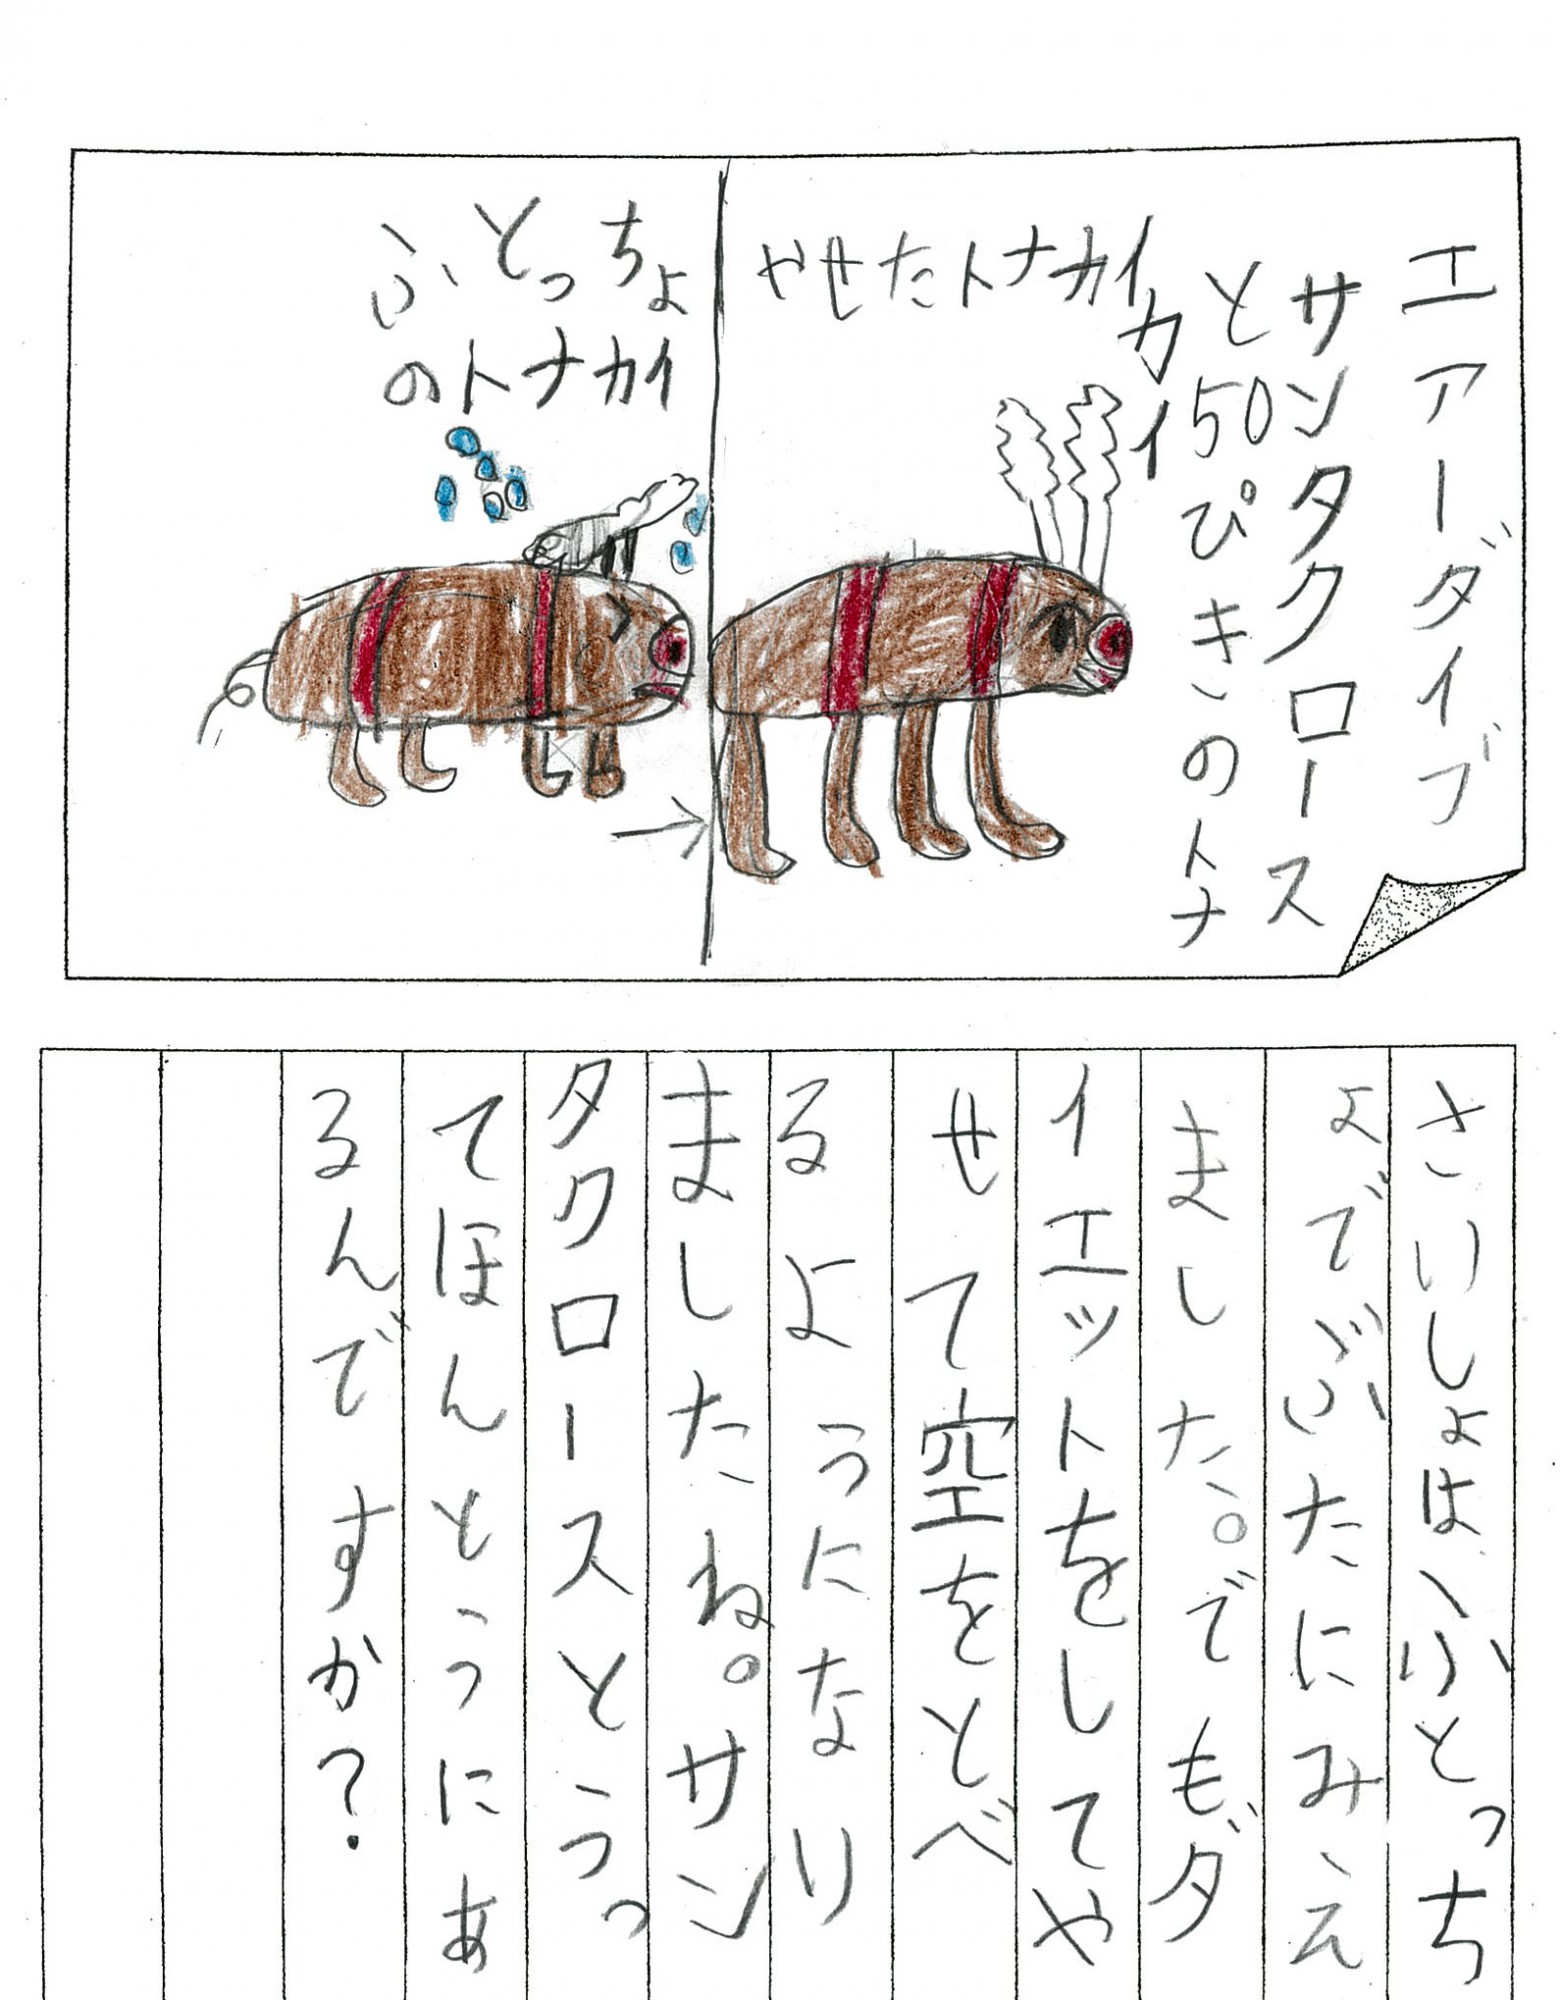 エアーダイブ
サンタクロース
と50ぴきのトナ
カイ
やせたトナカイ
ふとっちょ
のトナカイ
さいしょはふとっち
ょでぶたにみえ
ました。でもダ
イエットをしてや
せて空をとべ
るようになり
ましたね。サン
タクロースとうっ
てほんとうにあ
るんですか？